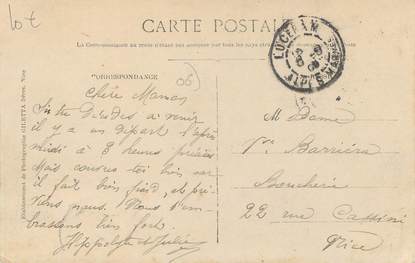 lot
CARTE POSTALE
La Correspondance au recto n'est pas acceptée par tous les pays étrangers
CORRESPONDANCE
(06)
LUCERAM
ALP
Chère Maman
Si tu décides à venir
il y a un départ l'après
midi à 3 heures précises
Mais couvres toi bien car
il fait bien froid, et pré-
viens nous. Nous t'em-
brassons bien fort.
Hippolyte et Julie
Madame
Vve Barriéra
Boucherie
22 rue Cassini
Nice
Etablissement de Photographie GILETTA frères, Nice